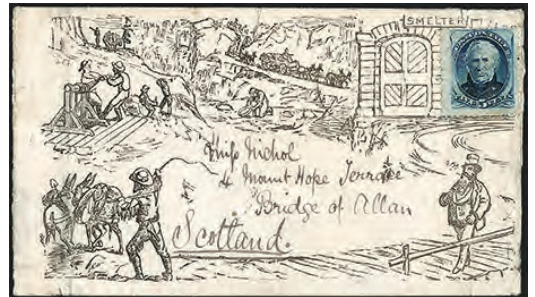 SMELTER
Miss Nichol
4 Mount Hope Terrace
Bridge of Allan
Scotland.